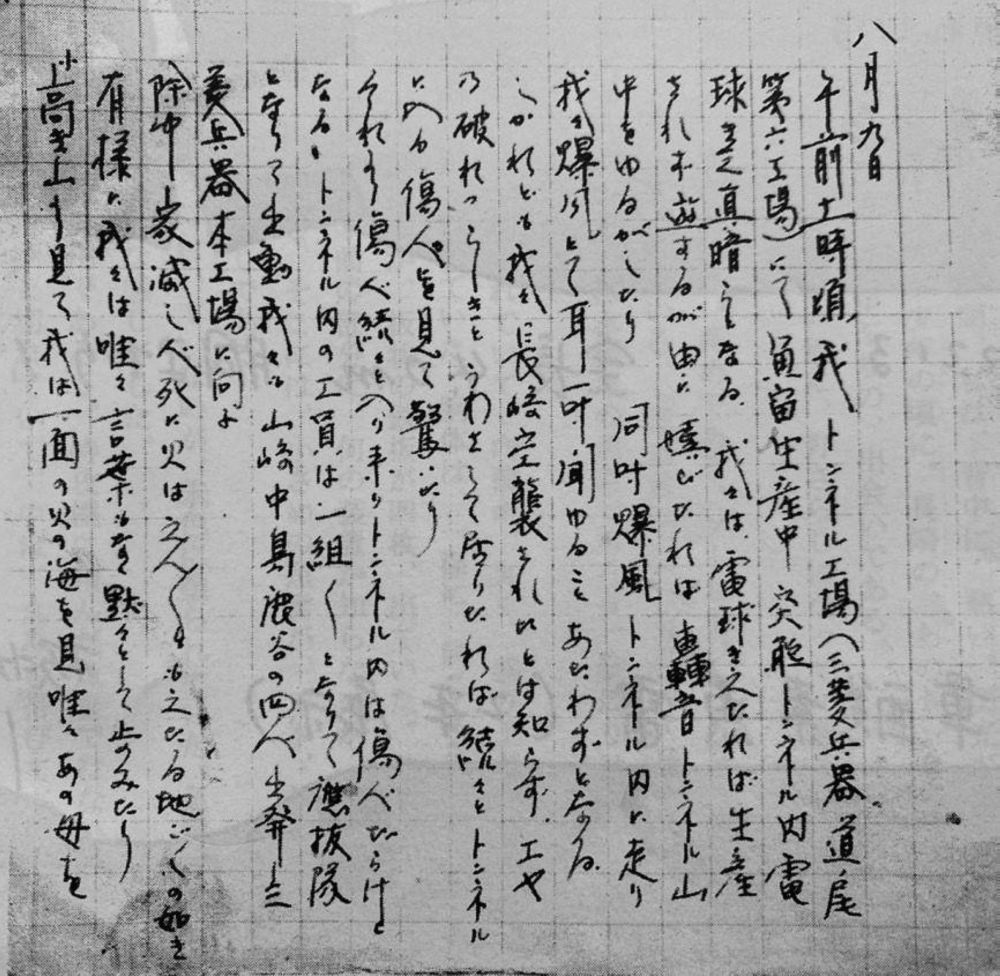 八月九日
午前十一時頃、我 トンネル工場(三菱兵器 道ノ尾
第六工場)にて 魚雷生産中 突然トンネル内電
球きえ真暗らとなる、我々は、電球きえたれば生産
されず遊するが由に 嬉びたれば 轟音トンネル山
中をゆるがしたり 同時爆風 トンネル内に走り
我々爆風とて耳一時聞ゆること あたわずとなる。
しかれども我々長崎空襲されたとは知らず、エヤ
の破れつらしきと うわさして居りたれば 続々とトンネル
に入る傷人を見て驚いたり
それより傷人続々と入り来りトンネル内は傷人だらけと
なる。トンネル内の工員は一組〱となりて 應援隊
となりて出動我々も山崎中島 谷の四人出発し三
菱兵器本工場に向ふ
除中 家滅し人死に火はえん〱ともえたる地ごくの如き
有様に我々は唯々言葉もなく黙々として止のみたり
小高き山より見て我は一面の火の海を見唯々あの母を